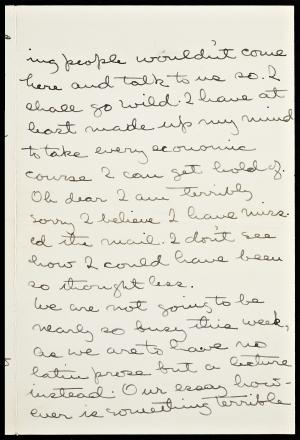 ing people wouldn't come
here and talk to us so. I
shall go wild. I have at
last made up my mind
to take every economic
course I can get hold of.
Oh dear I am terribly
sorry I believe I have miss-
ed the mail. I don't see
how I could have been
so thought less.
We are not going to be
nearly so busy this week,
as we are to have no
latin prose but a lecture
instead. Our essay how-
ever is something terrible